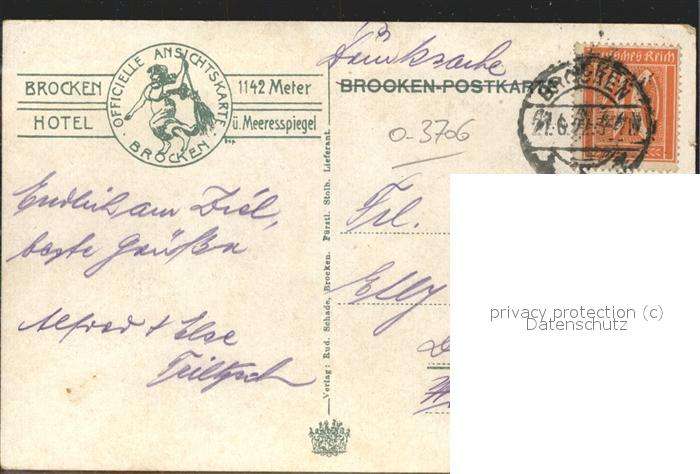 BROCKEN
HOTEL
OFFICIELLE ANSICHTSKARTE
BROCKEN
1142 Meter
ü. Meeresspiegel
Drucksache
BROCKEN-POSTKARTE
Deutsches Reich
BROCKEN
0-3706
Endlich am Ziel,
beste Grüße
Alfred + Else
Frl.
Elly
Verlag: Rud. Schade, Brocken. Fürstl. Stolb. Lieferant.
privacy protection (c)
Datenschutz